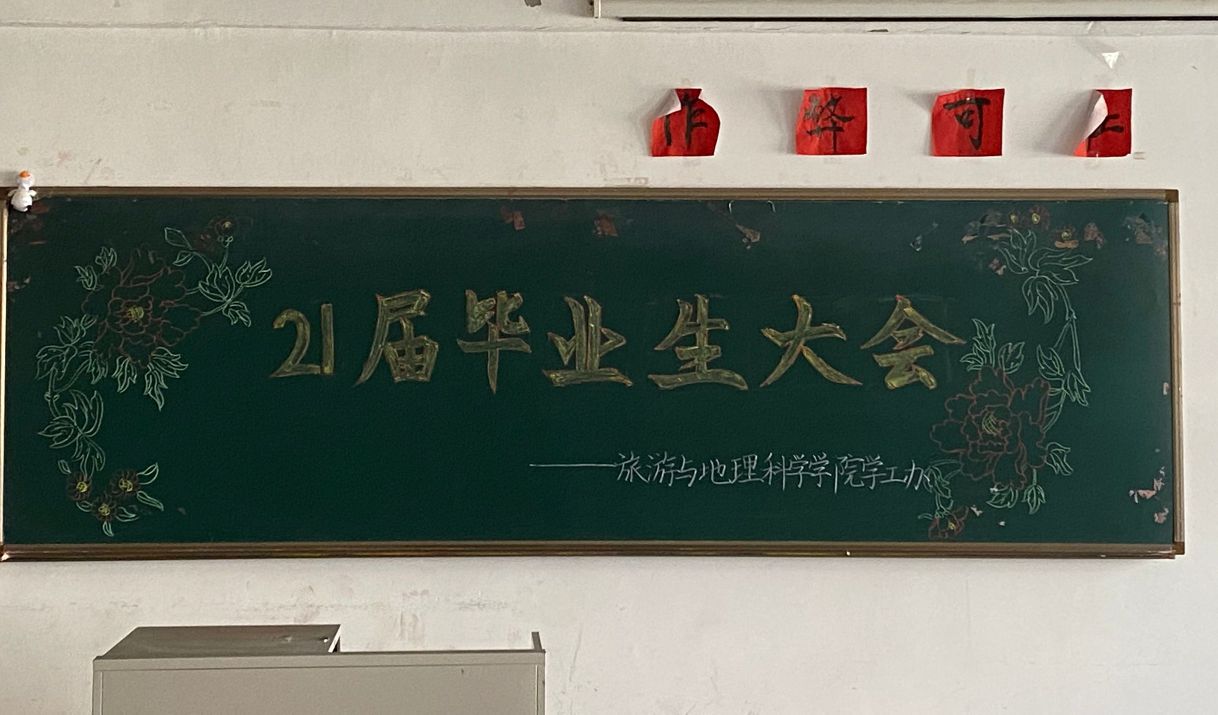 作 华 可 上
21届毕业生大会
——旅游与地理科学学院学工办